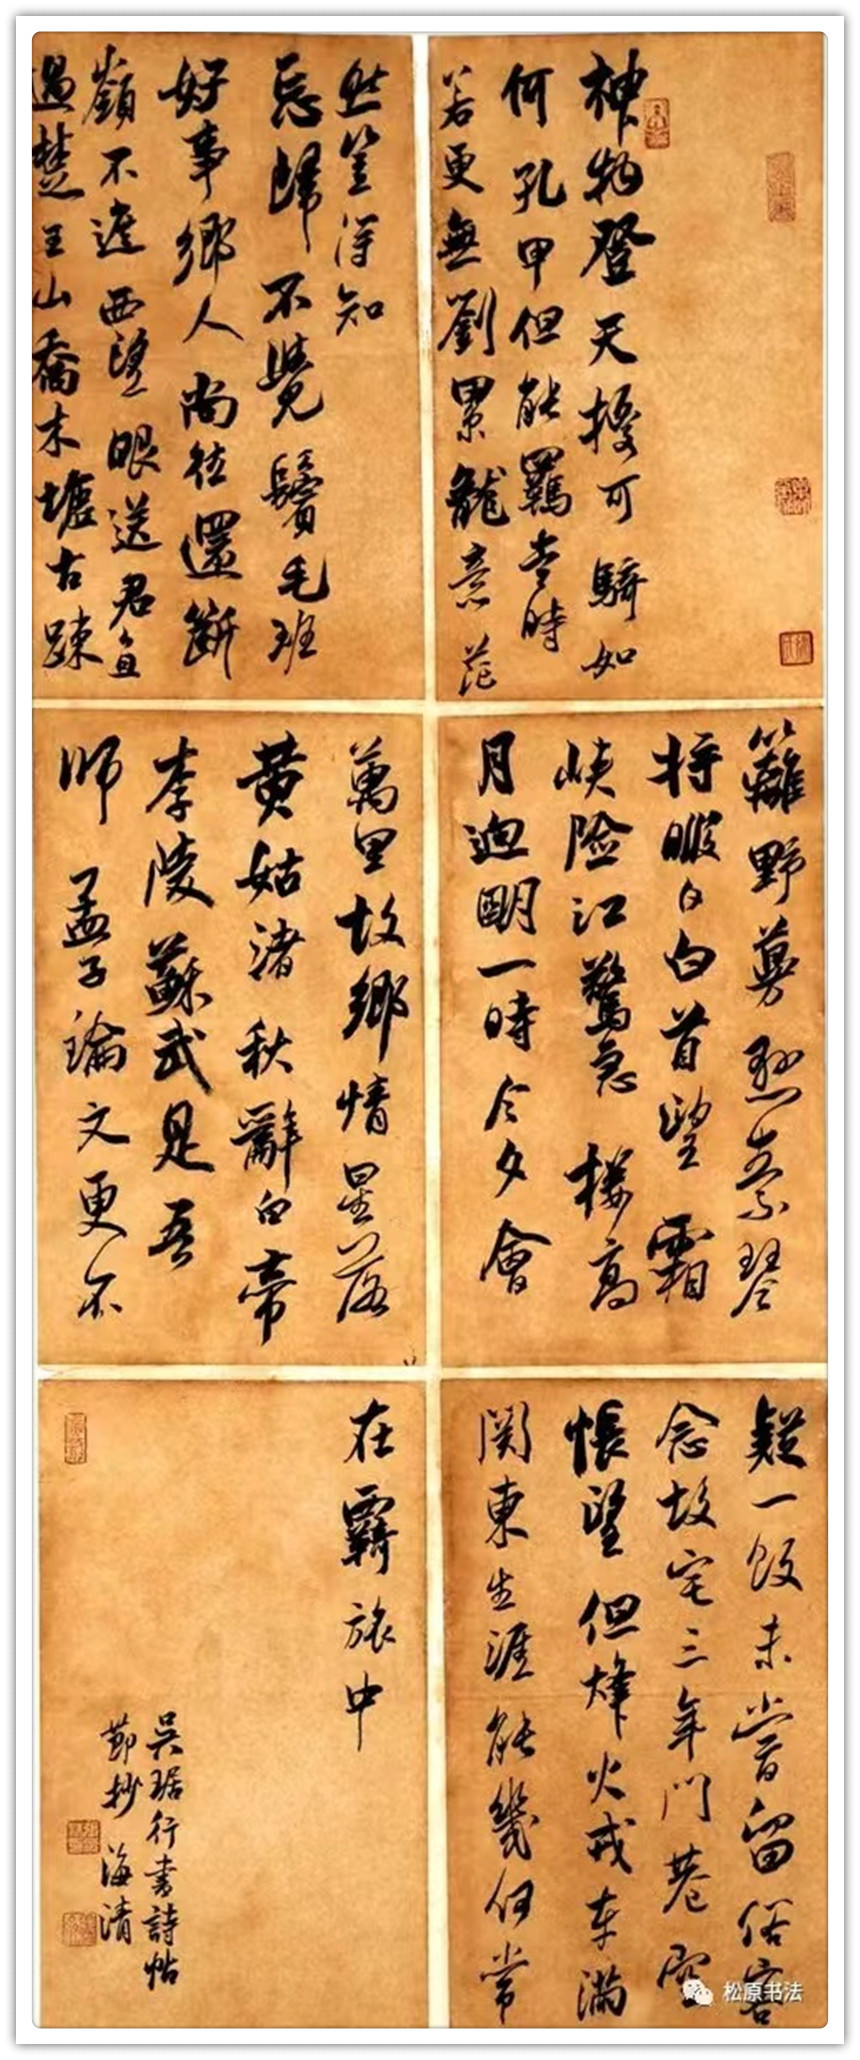 神物登天擾可騎如
何孔甲但能羈當時
若更無劉累龍意茫
然豈得知
忘歸不覺鬢毛班
好事鄉人尚往還斷
嶺不遮西望眼送君直
過楚王山喬木壚古疎
籬野蔓懸素琴
將暇日白首望霜
峽險江驚急樓高
月迥明一時今夕會
萬里故鄉情星落
黃姑渚秋辭白帝
李陵蘇武是吾
師孟子論文更不
疑一飯未嘗留俗客
念故宅三年門巷空
悵望但烽火戎車滿
關東生涯能幾何常
在羇旅中
吳琚行書詩帖
節抄海清
松原书法